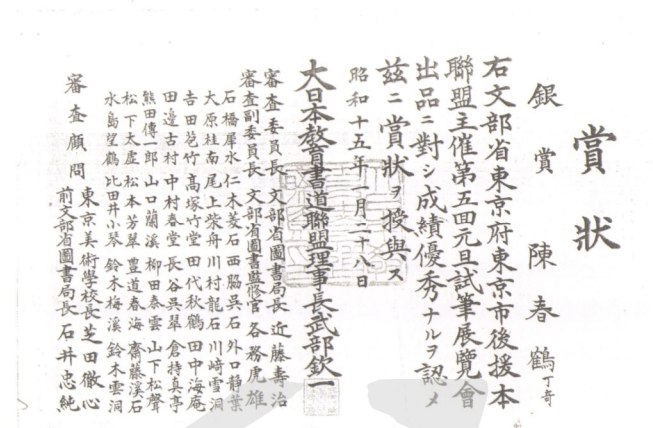 賞狀
銀賞 陳春鶴 丁奇
右文部省東京府東京市後援本
聯盟主催第五回元旦試筆展覽會
出品ニ對シ成績優秀ナルヲ認メ
茲ニ賞狀ヲ授與ス
昭和十五年一月二十八日
大日本教育書道聯盟理事長武部欽一
審査委員長 文部省圖書局長 近藤壽治
審査副委員長 文部省圖書監修官 各務虎雄
石橋犀水 仁木菱石 西脇吳石 外口靜葉
大原桂南 尾上柴舟 川村龍石 川崎雪洞
吉田苞竹 高塚竹堂 田代秋鶴 田中海庵
田邊古村 中村春堂 長谷吳翠 倉持真亭
熊田傳一郎 山口蘭溪 柳田泰雲 山下松聲
松下太虛 松本芳翠 豊道春海 齋藤溪石
水島望鶴 比田井小琴 鈴木梅溪 鈴木雲洞
審査顧問 東京美術學校長 芝田徹心
前文部省圖書局長 石井忠純